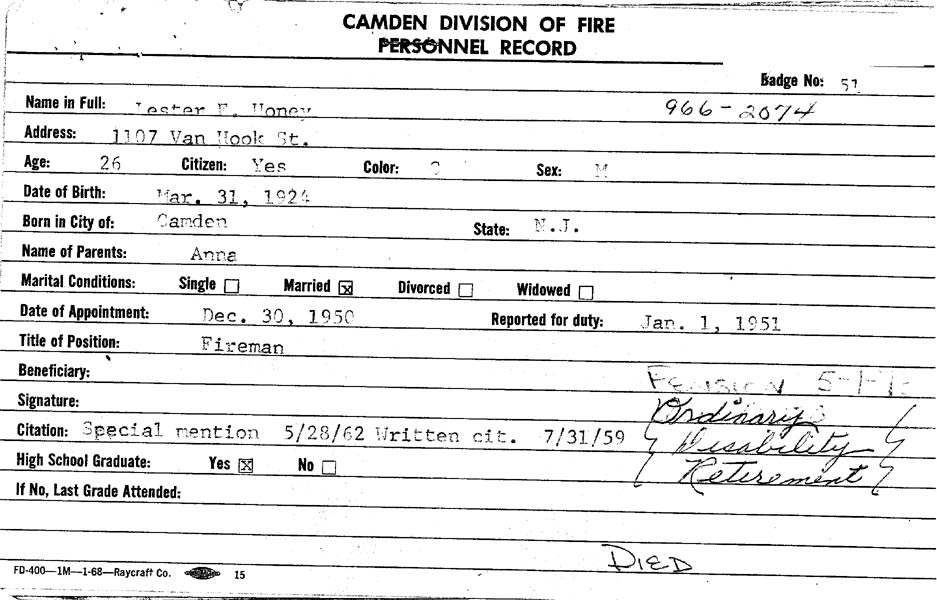 CAMDEN DIVISION OF FIRE
PERSONNEL RECORD
Badge No: 51
Name in Full: Lester F. Honey 966-2074
Address: 1107 Van Hook St.
Age: 26 Citizen: Yes Color: Sex: M
Date of Birth: Mar. 31, 1924
Born in City of: Camden State: N.J.
Name of Parents: Anna
Marital Conditions: Single ☐ Married ☒ Divorced ☐ Widowed ☐
Date of Appointment: Dec. 30, 1950 Reported for duty: Jan. 1, 1951
Title of Position: Fireman
Beneficiary: PENSION
Signature: Ordinary
Citation: Special mention 5/28/62 Written cit. 7/31/59 Disability
High School Graduate: Yes ☒ No ☐ Retirement
If No, Last Grade Attended:
DIED
FD-400—1M—1-68—Raycraft Co. 15